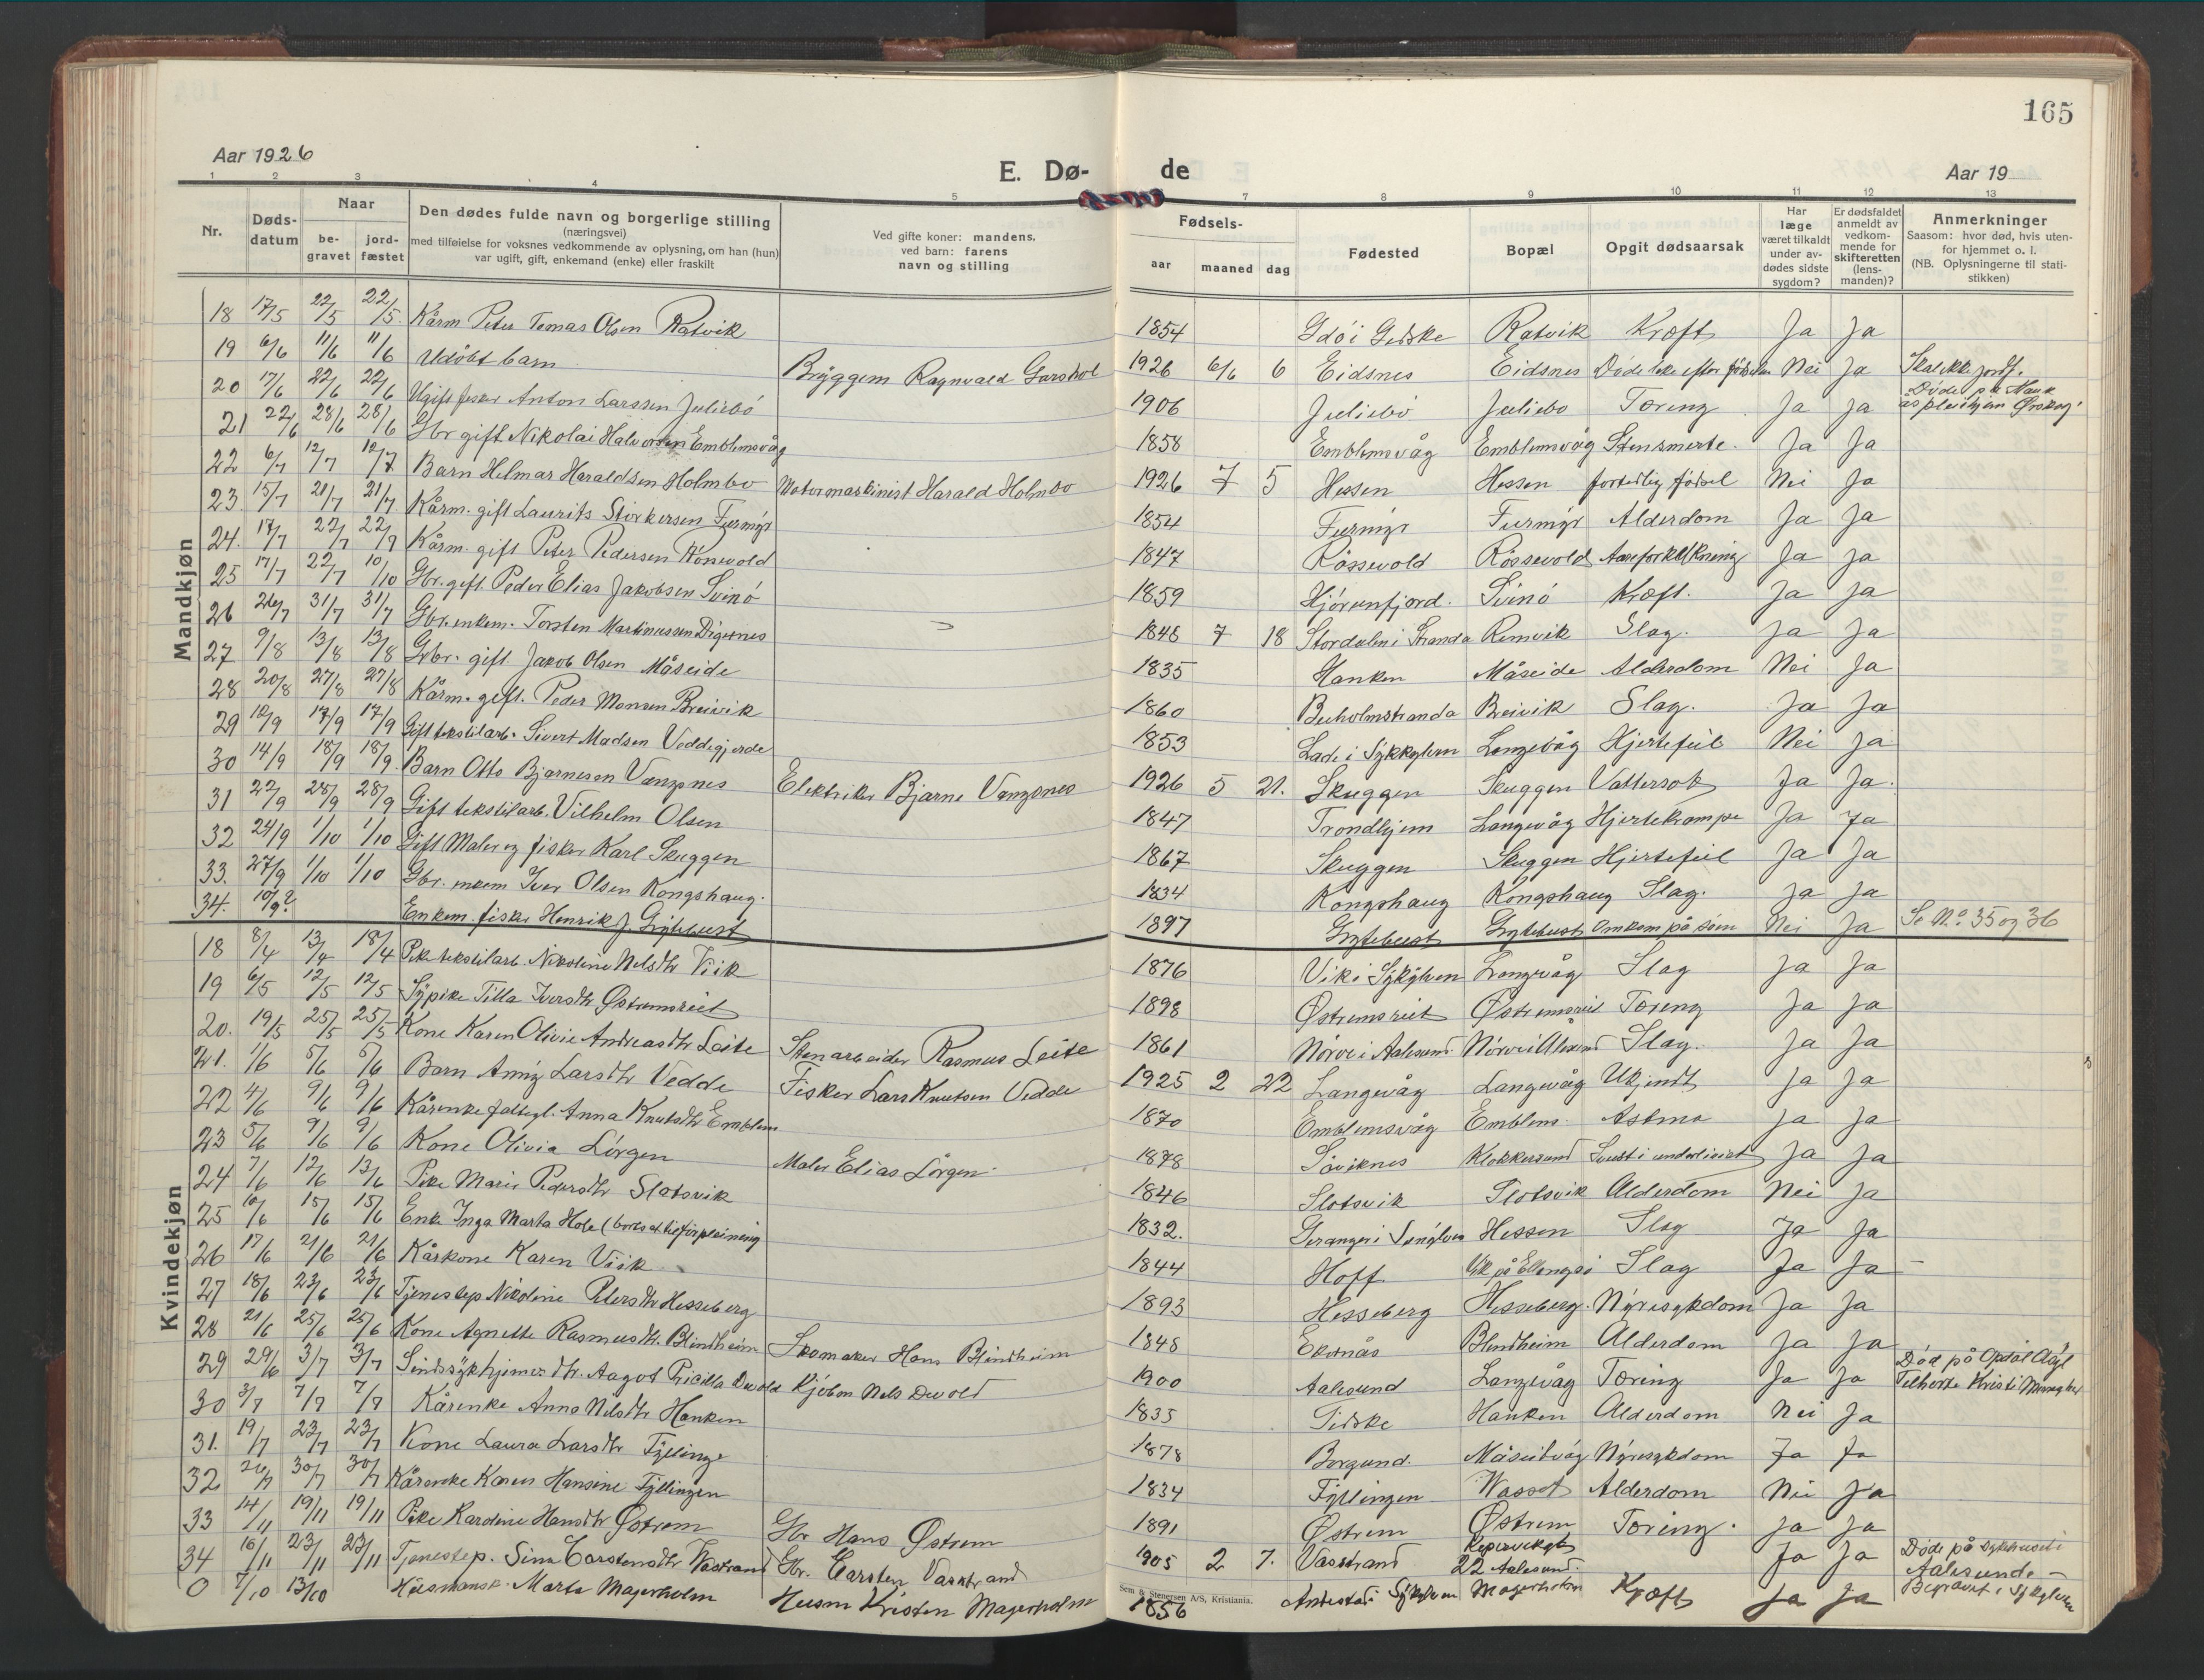 165
Aar 1926
E. Dø-
de
Aar 19
1 2 3 4 5 7 8 9 10 11 12 13
Nr.
Døds-
datum
Naar
be-
gravet
jord-
fæstet
Den dødes fulde navn og borgerlige stilling
(næringsvei)
med tilføielse for voksnes vedkommende av oplysning, om han (hun)
var ugift, gift, enkemand (enke) eller fraskilt
Ved gifte koner: mandens,
ved barn: farens
navn og stilling
Fødsels-
aar maaned dag
Fødested
Bopæl
Opgit dødsaarsak
Har
læge
været tilkaldt
under av-
dødes sidste
sygdom?
Er dødsfaldet
anmeldt av
vedkom-
mende for
skifteretten
(lens-
manden)?
Anmerkninger
Saasom: hvor død, hvis uten-
for hjemmet o. l.
(NB. Oplysningerne til stati-
stikken)
Mandkjøn
18 17/5 22/5 22/5 Kårm Peter Tomas Olsen Ratvik 1854 Giske Ratvik Kræft Ja Ja
19 6/6 11/6 11/6 Udøbt barn Bryggem Ragnvald Garshol 1926 6/6 6 Eidsnes Eidsnes Døde like efter fødselen Nei Ja Skal ikke jordf.
20 17/6 22/6 22/6 Ugift fisker Anton Larssen Juliebö 1906 Juliebö Juliebö Tæring Ja Ja Döde på Hauk
ås pleiehjem Ørskog
21 22/6 28/6 28/6 Gbr gift Nikolai Halvorsen Emblemsvåg 1858 Emblemsvåg Emblemsvåg Stensmerte. Ja Ja
22 6/7 12/7 12/7 Barn Helmar Haraldsen Holmbo Motormaskinist Harald Holmbo 1926 7 5 Hessen Hessen fortidlig födsel Nei Ja
23. 15/7 21/7 21/7 Kårm. gift Laurits Storkersen Furmyr 1854 Furmyr Furmyr Alderdom Ja Ja
24. 17/7 22/7 22/7 Kårm. gift Peter Pedersen 1847 Rössevold Rössevold Aareforkalkning Ja Ja
25 17/7 22/7 10/10 Gbr. gift. Peder Elias Jakobsen Svinö 1859 Hjörunfjord. Svinö Kræft. Ja Ja
26 26/7 31/7 31/7 Gbr. enkem. Torsten Martinussen Digernes 1848 7 18 Stordalen i Stranda Remvik Slag. Ja Ja
27 9/8 13/8 13/8 Gbr. gift. Jakob Olsen Måseide 1835 Hanken Måseide Alderdom Nei Ja
28 20/8 27/8 27/8 Kårm. gift. Peder Monsen Breivik 1860 Buholmstranda Breivik Slag. Ja Ja
29 12/9 17/9 17/9 Gift tekstilarb. Sivert Madsen Veddegjerde 1853 Lade i Sykkylven Langevåg Hjertefeil Nei Ja
30 14/9 18/9 18/9. Barn Otto Bjarnesen Vengsnes Elektriker Bjarne Vengsnes 1926 5 21. Skuggen Skuggen Vattersot Ja Ja.
31 22/9 28/9 28/9 Gift tekstilarb. Vilhelm Olsen 1847 Trondhjem Langevåg Hjertekrampe Ja Ja
32 24/9 1/10 1/10 Gift Maler og fisker Karl Skuggen 1867 Skuggen Skuggen Hjertefeil Ja Ja
33. 27/9 1/10 1/10 Gbr. enkem Iver Olsen Kongshaug. 1834 Kongshaug Kongshaug Slag. Ja Ja
34. 10/9? Enkem. fisker Henrik J. Gjytebust 1897 Gjytebust Gjytebust Omkom på sjöen Nei Ja Se No. 35 og 36
Kvindekjøn
18 8/4 13/4 18/4 Pike tekstilarb. Nikoline Nilsdtr Viik 1876 Vik i Sykylven Langevåg Slag Ja Ja
19 6/5 12/5 12/5 Sypike Tilla Iversdtr Østremsreiet 1898 Østremsreiet Østremsreiet Tæring Ja Ja
20. 19/5 25/5 25/5 Kone Karen Olivie Andreasdtr Leite Stenarbeider Rasmus Leite 1861 Nörve i Aalesund Nörve i Ålesund Slag. Ja Ja
21. 1/6 5/6 5/6 Barn Anny Larsdtr Vedde Fisker Lars Knutsen Vedde 1925 2 22 Langevåg Langevåg Ukjendt Ja Ja
22 4/6 9/6 9/6 Kårenke Anna Knutsdtr Emblem 1870 Emblemsvåg Emblem. Astma Ja Ja
23 5/6 9/6 9/6 Kone Olivia Lörgen Maler Elias Lörgen. 1878 Söviknes Klokkersund Svulst i underlivet Ja Ja
24 7/6 12/6 13/6 Pike Marie Pedersdtr Slotsvik 1846 Slotsvik Slotsvik Alderdom Nei Ja
25 10/6 15/6 15/6 Enke Inga Marta Hole 1832. Geiranger i Sunylven Hessen Slag Ja Ja
26 17/6 21/6 21/6 Kårkone Karen Viik 1844 Hoff Vik på Ellingsö Slag Ja Ja
27 18/6 23/6 23/6 Tjenestep Nikoline Petersdtr Hesseberg 1893 Hesseberg Hesseberg. Nyresykdom Ja Ja
28 21/6 25/6 25/6 Kone Agnette Rasmusdtr. Blindheim Skomaker Hans Blindheim 1848 Ekornås Blindheim Alderdom Ja Ja
29 29/6 3/7 3/7 Aagot Pricilla Devold Kjöbm Nils Devold 1900 Aalesund Langevåg Tæring Ja Ja Död på Opdöl
30 3/7 7/7 7/7 Kårenke Anna Nilsdtr Hanken 1835 Giske Hanken Alderdom Nei Ja
31. 19/7 23/7 23/7 Kone Laura Larsdtr Fyllinge 1878 Borgund Måseidvåg Nyresykdom Ja Ja
32 26/7 30/7 30/7 Kårenke Karen Hansine Fyllingen 1834 Fyllingen Wasset Alderdom Nei Ja
33 14/11 19/11 19/11 Pike Karoline Hansdtr Østrem Gbr Hans Østrem 1891 Østrem Østrem Tæring. Ja Ja
34 16/11 23/11 23/11 Tjenestep. Sina Carstensdtr Vasstrand Gbr. Carsten Vasstrand 1905 2 7. Vasstrand 22 Aalesund. Ja Ja Döde på sykehuset i
Aalesund
0 7/10 13/10 Husmansk. Marta Magerholm Husm Kristen Magerholm 1856 Sykylven Magerholm Kræft Ja Ja Begravet i Sykylven
Sem & Stenersen A/S, Kristiania.